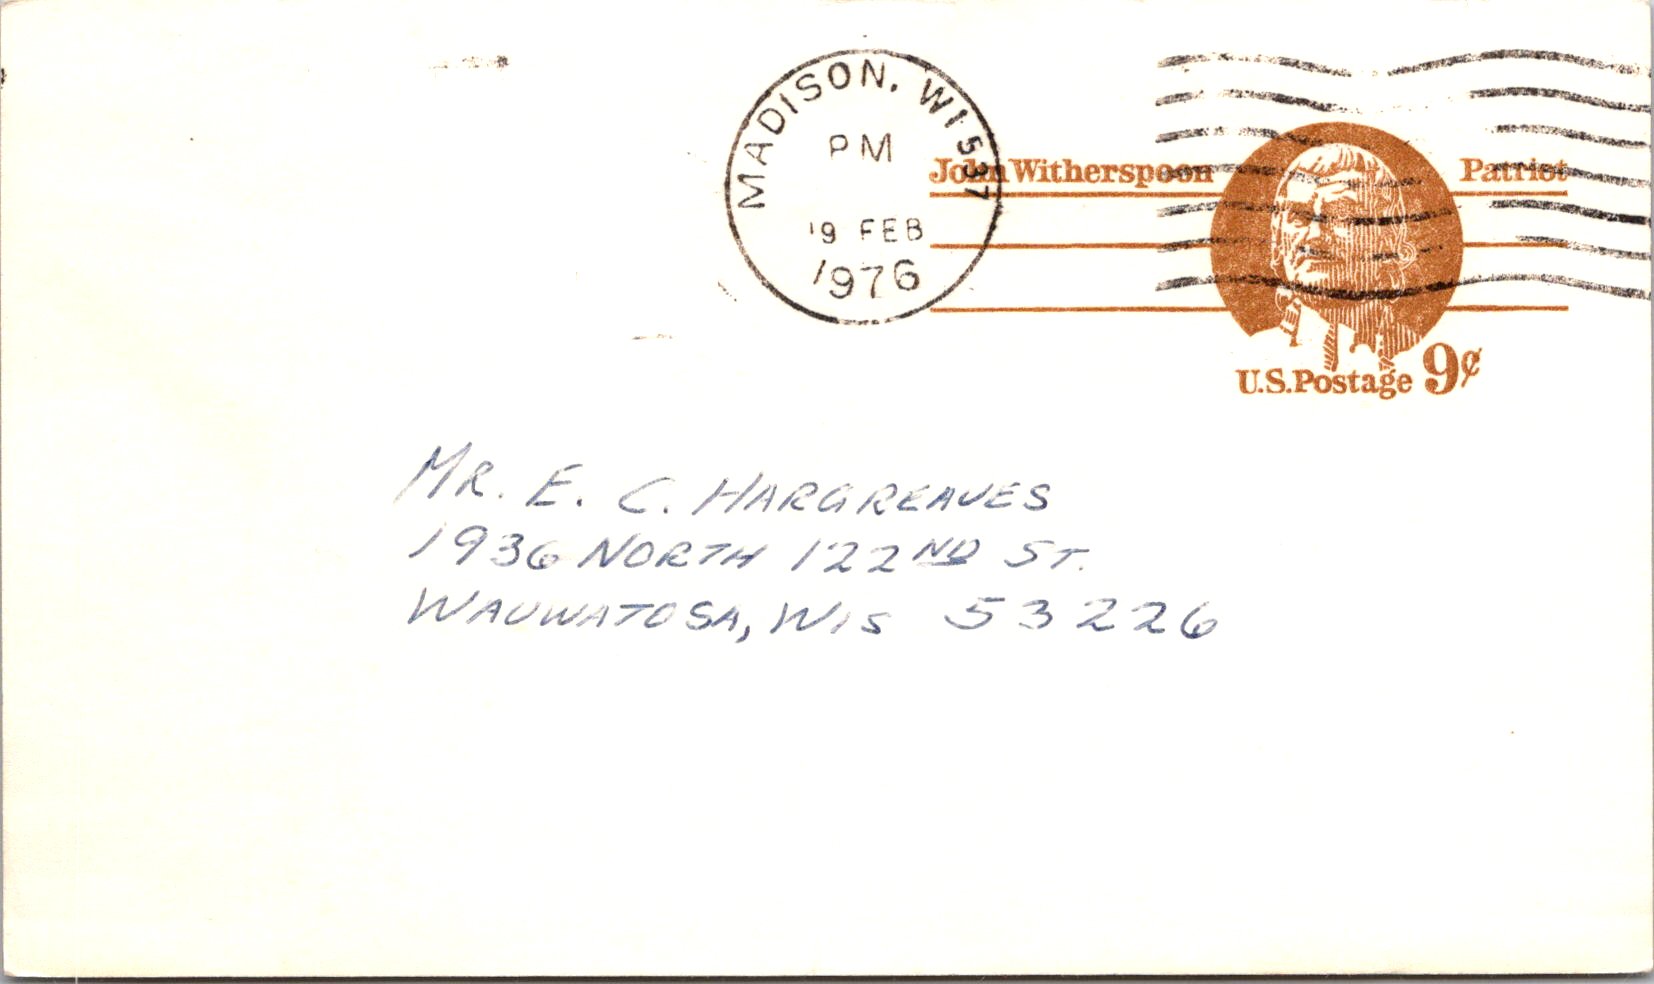 MADISON, WI 537
PM
19 FEB
1976
John Witherspoon Patriot
U.S. Postage 9¢
MR. E. C. HARGREAVES
1936 NORTH 122ND ST.
WAUWATOSA, WIS 53226